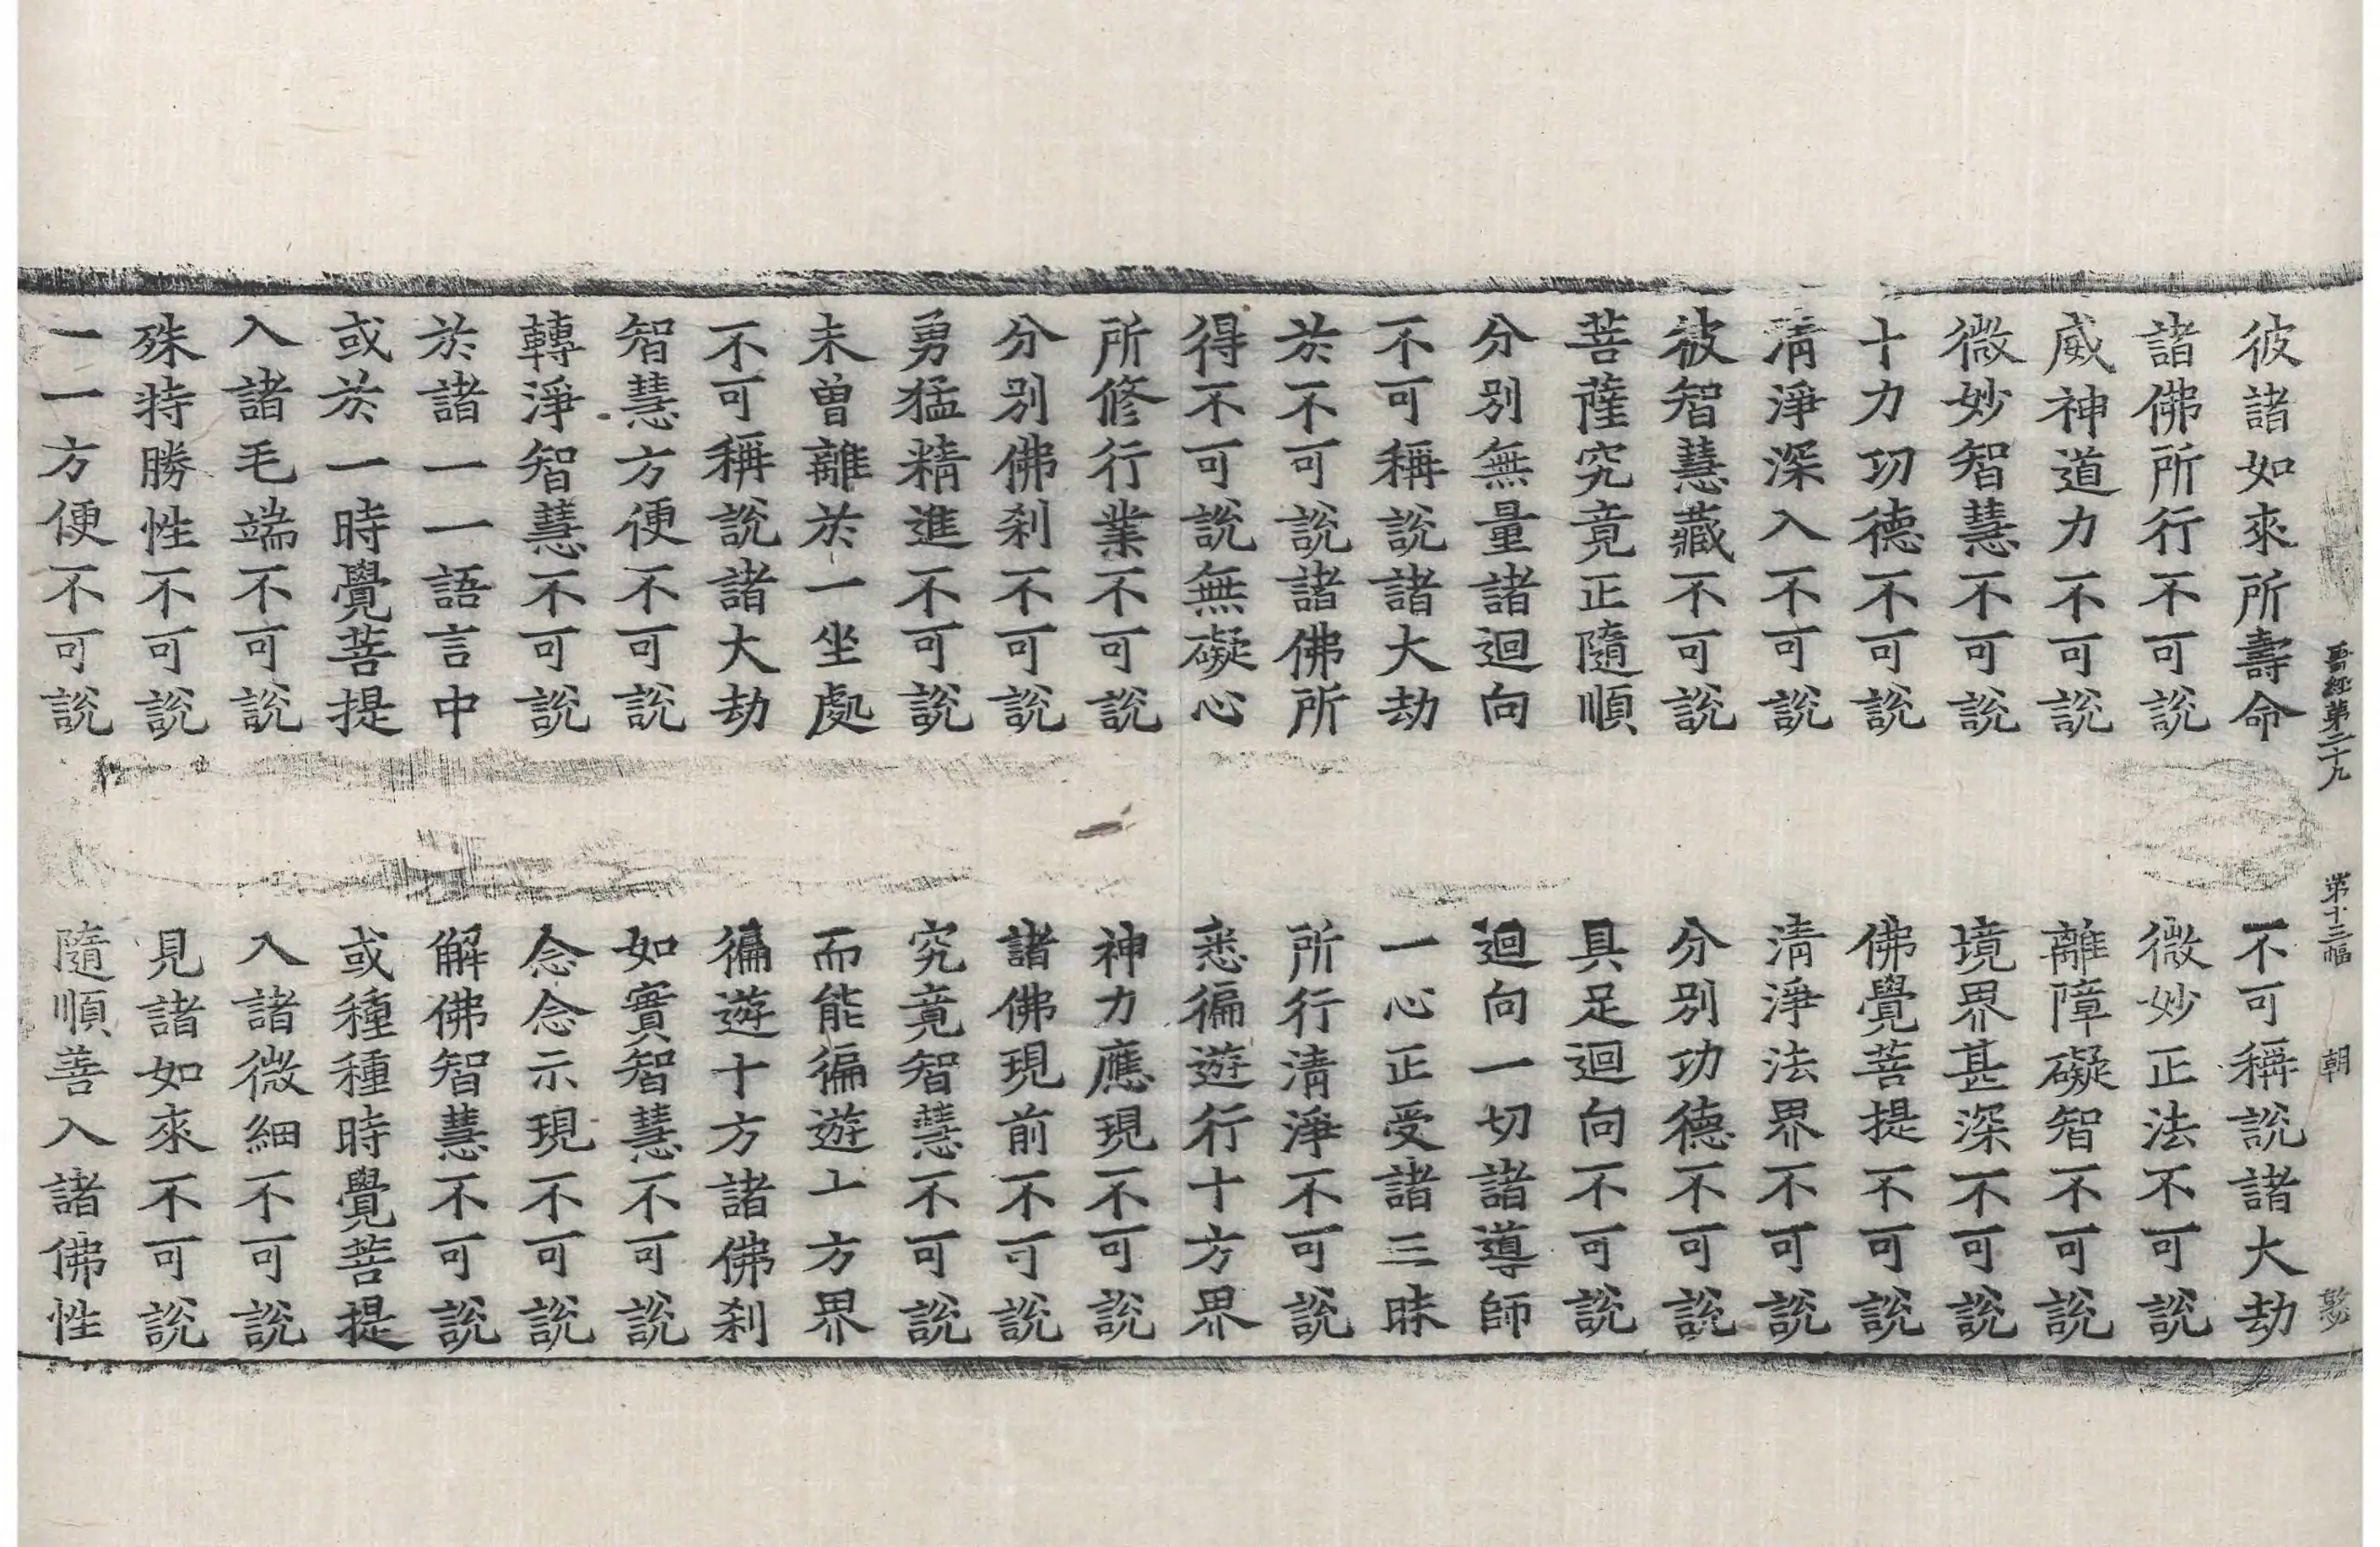 晋經第二十九 第十三幅 朝
彼諸如來所壽命 不可稱說諸大劫
諸佛所行不可說 微妙正法不可說
威神道力不可說 離障礙智不可說
微妙智慧不可說 境界甚深不可說
十力功德不可說 佛覺菩提不可說
清淨深入不可說 清淨法界不可說
彼智慧藏不可說 分別功德不可說
菩薩究竟正隨順 具足迴向不可說
分別無量諸迴向 迴向一切諸導師
不可稱說諸大劫 一心正受諸三昧
於不可說諸佛所 所行清淨不可說
得不可說無礙心 悉徧遊行十方界
所修行業不可說 神力應現不可說
分別佛刹不可說 諸佛現前不可說
勇猛精進不可說 究竟智慧不可說
未曾離於一坐處 而能徧遊十方界
不可稱說諸大劫 徧遊十方諸佛刹
智慧方便不可說 如實智慧不可說
轉淨智慧不可說 念念示現不可說
於諸一一語言中 解佛智慧不可說
或於一時覺菩提 或種種時覺菩提
入諸毛端不可說 入諸微細不可說
殊特勝性不可說 見諸如來不可說
一一方便不可說 隨順善入諸佛性